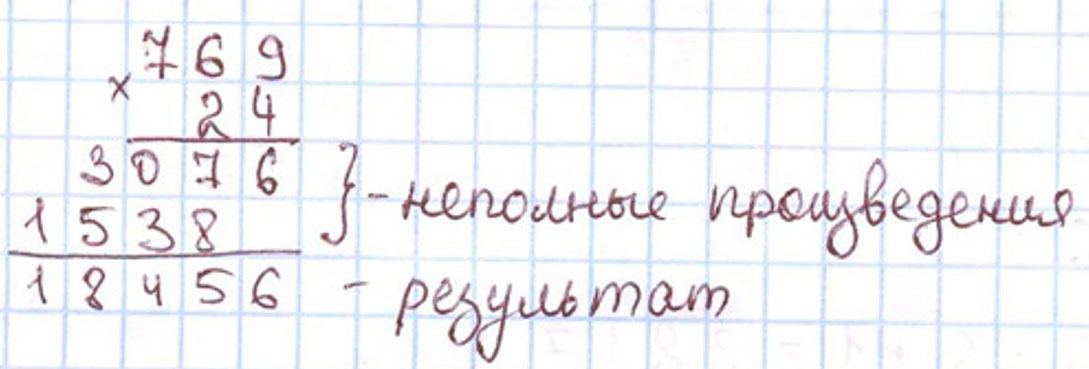 769
× 24
3076 } - неполные произведения
1538
18456 - результат